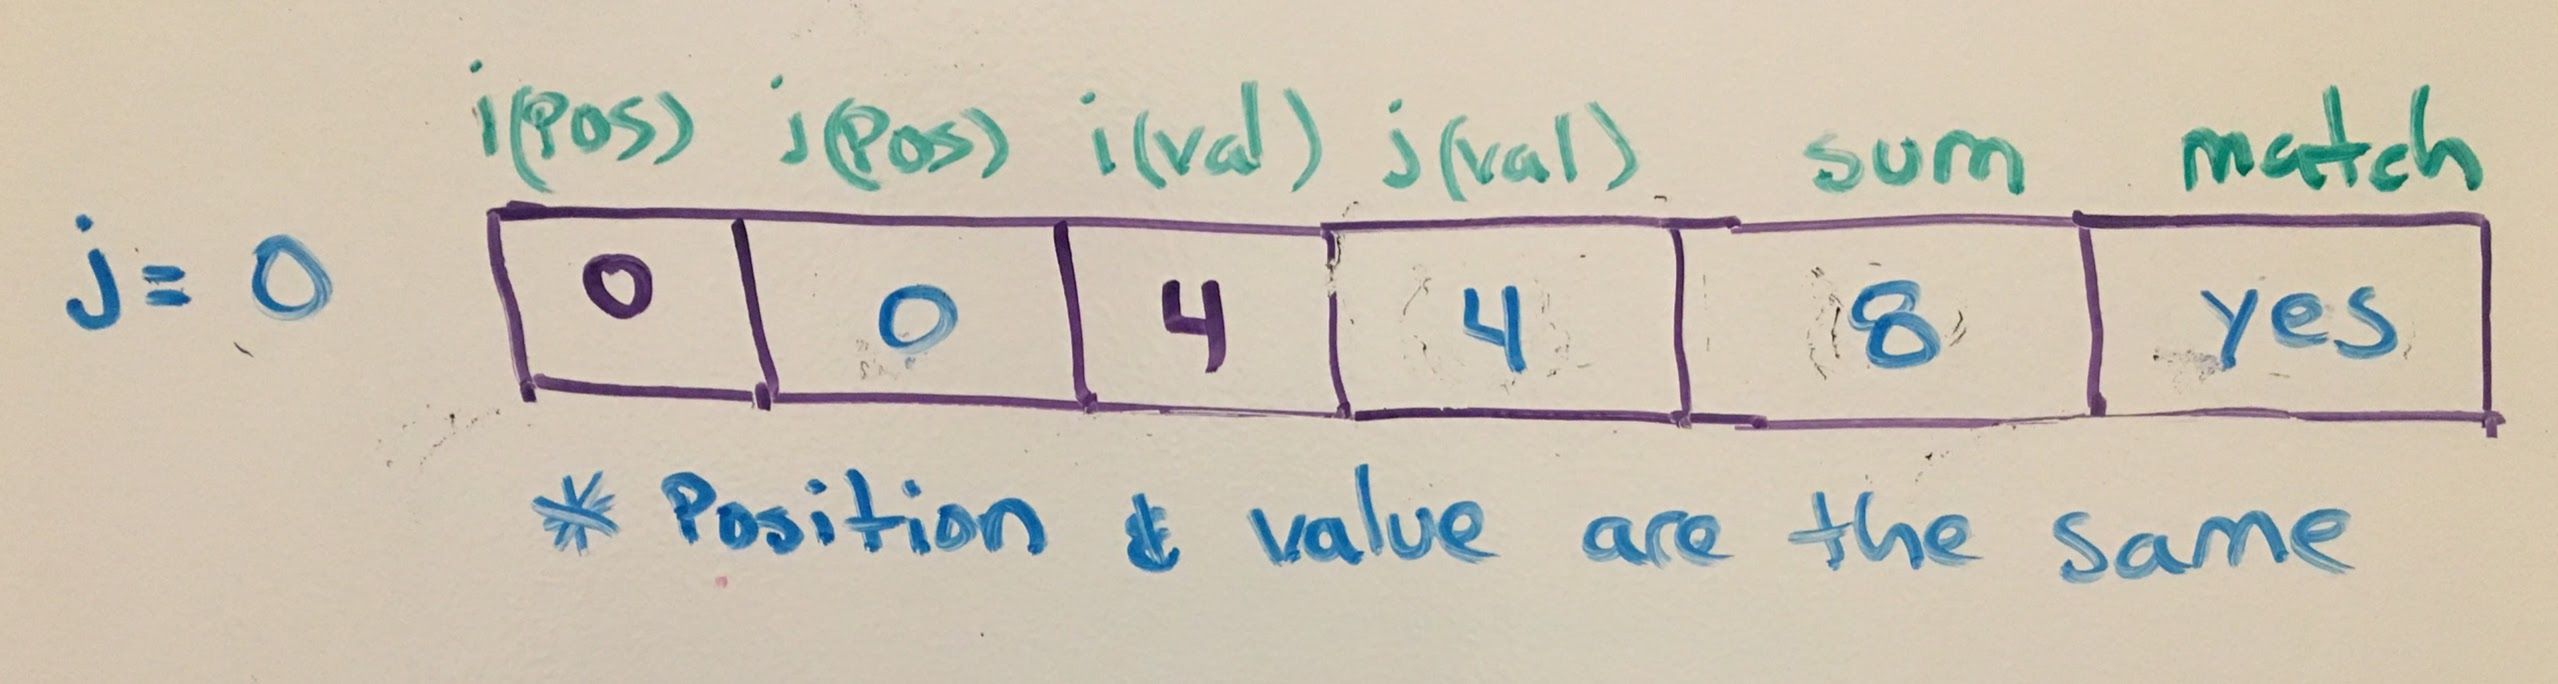 i(Pos) j(Pos) i(val) j(val) sum match
j = 0 0 0 4 4 8 yes
* Position & value are the same